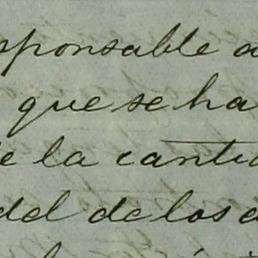 sponsable a
que se ha
e la canti
del de los a